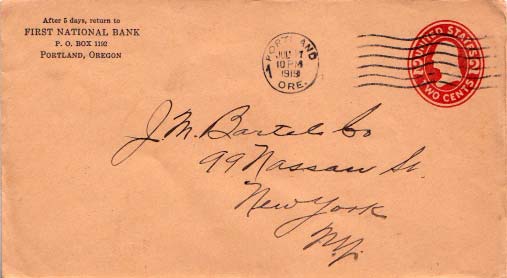 After 5 days, return to
FIRST NATIONAL BANK
P. O. BOX 1192
PORTLAND, OREGON
PORTLAND
JUL 7
10 PM
1919
ORE.
UNITED STATES
2 2
TWO CENTS
J. M. Bartels Co
99 Nassau St.
New York
N.Y.